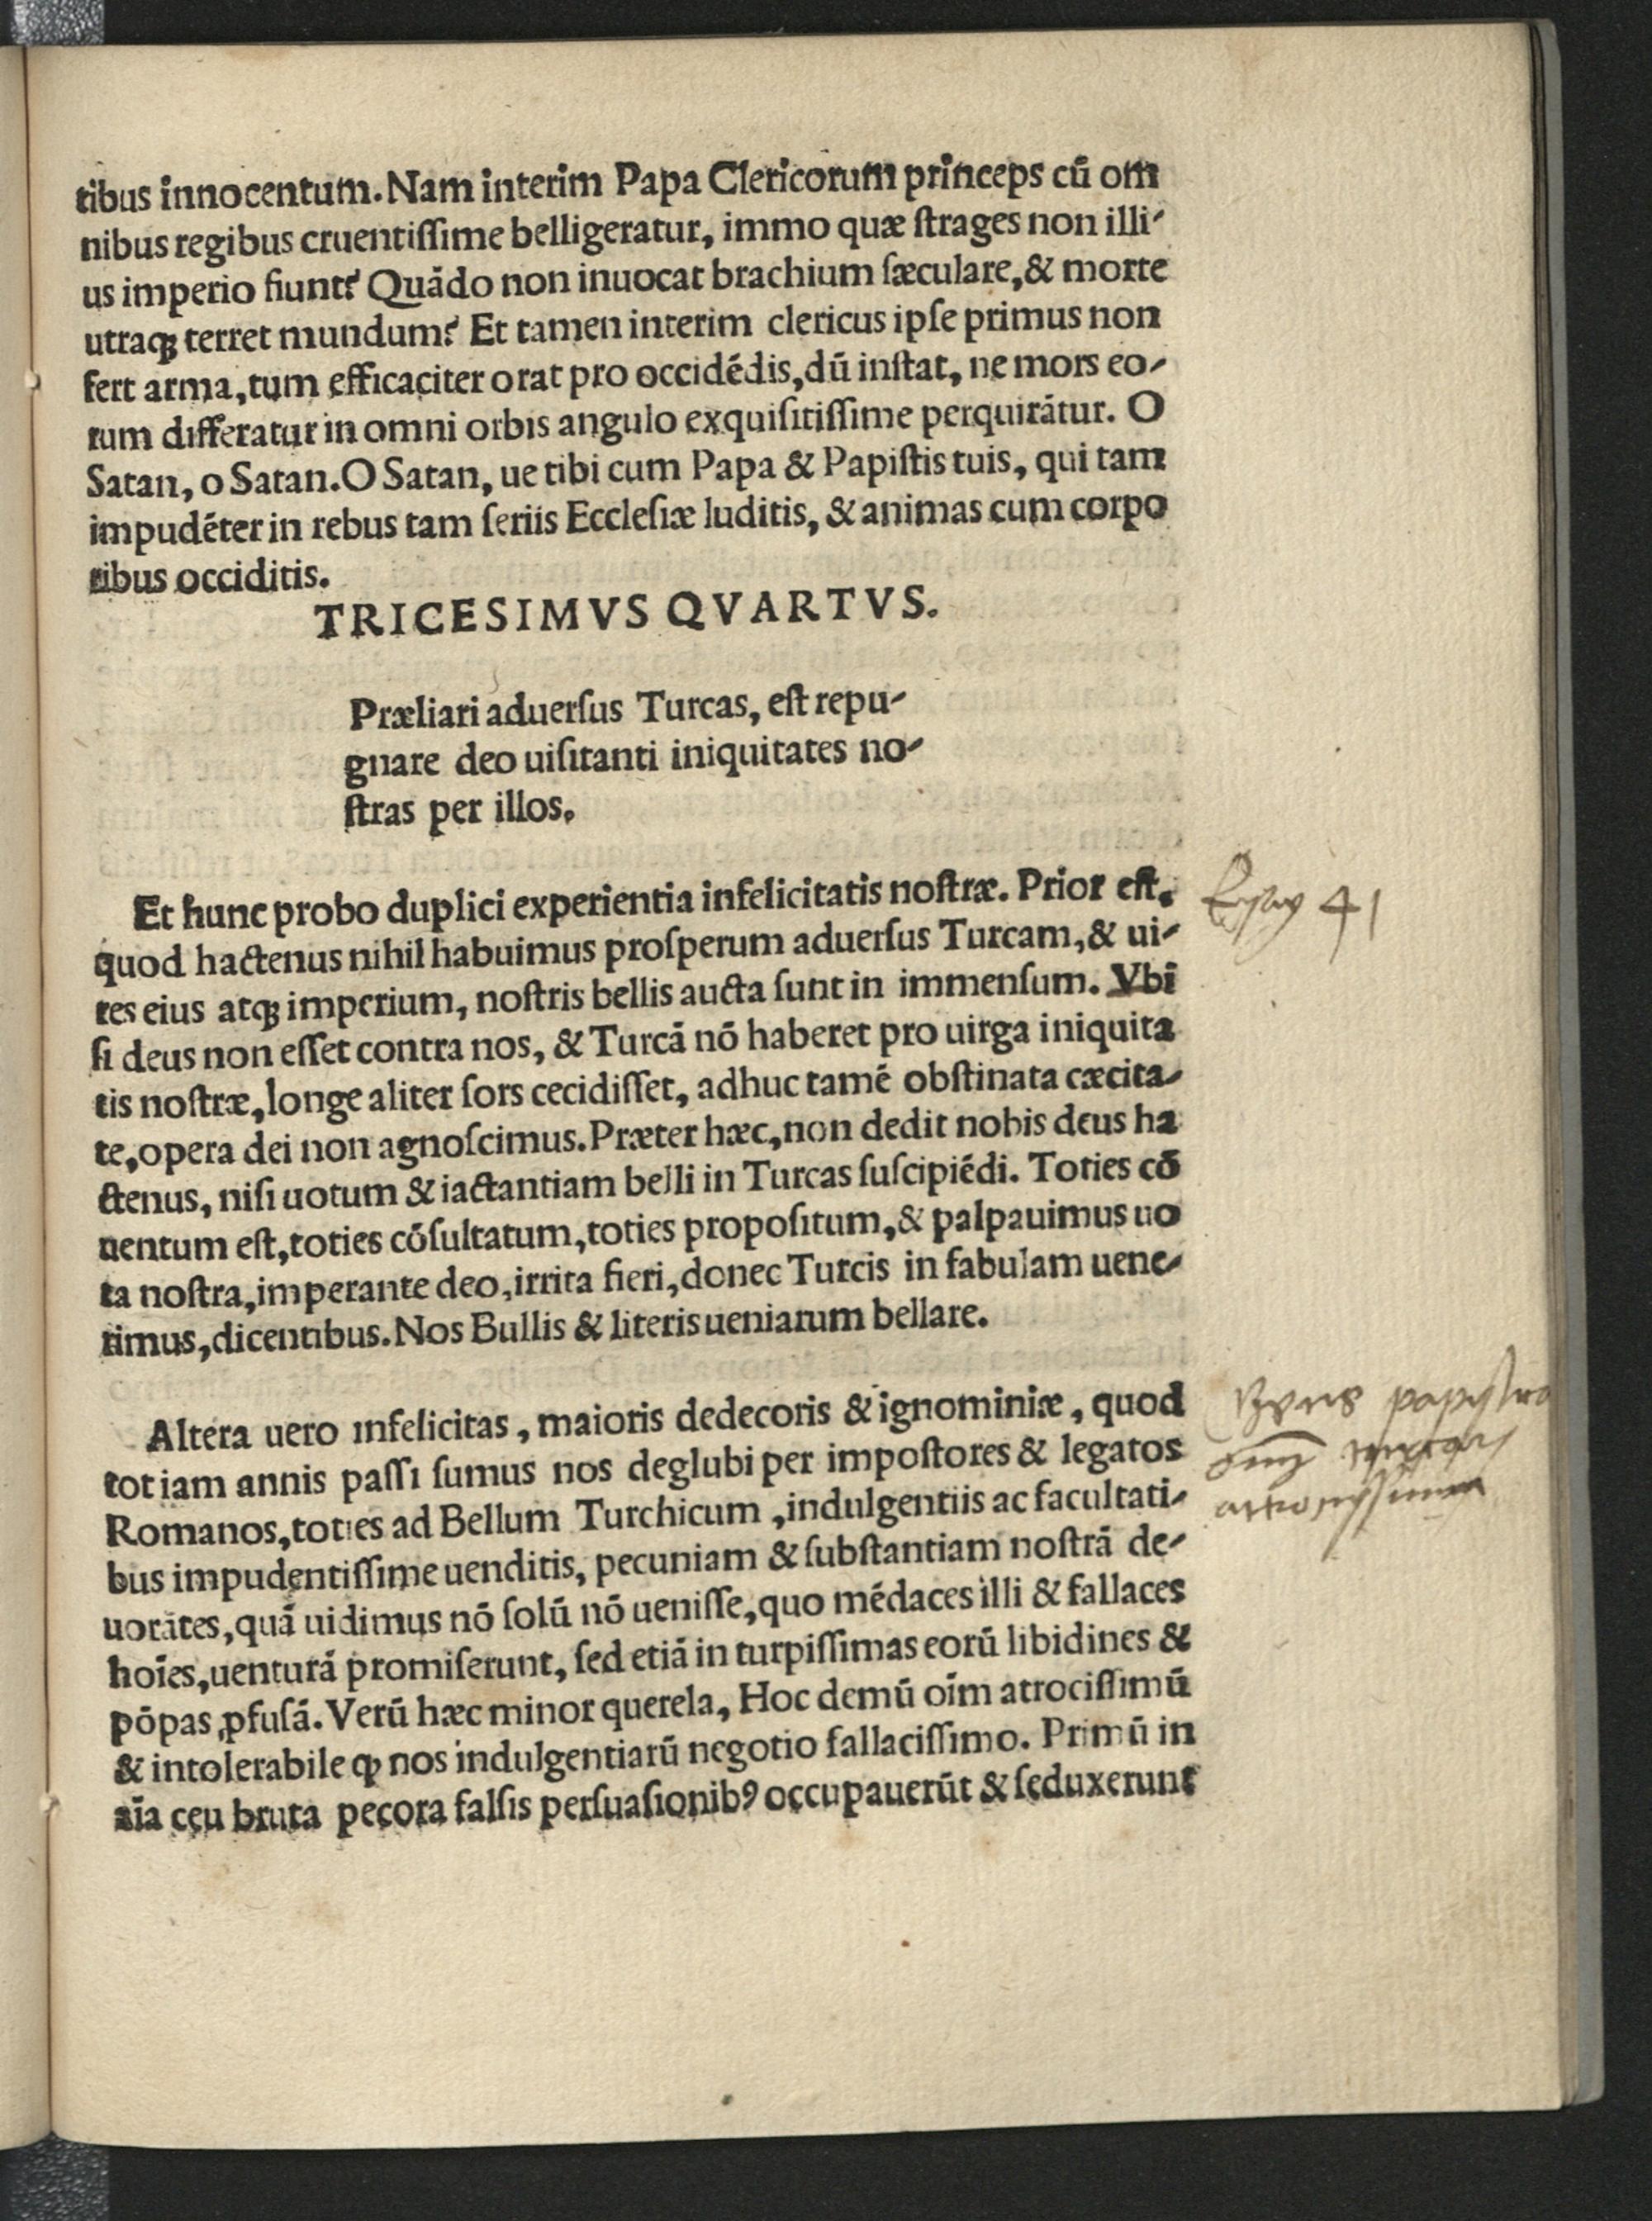 tibus innocentum. Nam interim Papa Clericorum princeps cū om
nibus regibus cruentiſſime belligeratur, immo quæ ſtrages non illi-
us imperio fiunt? Quādo non inuocat brachium ſæculare, & morte
utraqꝫ terret mundum? Et tamen interim clericus ipſe primus non
fert arma, tum efficaciter orat pro occidēdis, dū inſtat, ne mors eo-
rum differatur in omni orbis angulo exquiſitiſſime perquirātur. O
Satan, o Satan. O Satan, ue tibi cum Papa & Papiſtis tuis, qui tam
impudēter in rebus tam ſeriis Eccleſiæ luditis, & animas cum corpo
ribus occiditis.
TRICESIMVS QVARTVS.
Præliari aduerſus Turcas, eſt repu-
gnare deo uiſitanti iniquitates no-
ſtras per illos.
Et hunc probo duplici experientia infelicitatis noſtræ. Prior eſt.
41
quod hactenus nihil habuimus proſperum aduerſus Turcam, & ui-
res eius atqꝫ imperium, noſtris bellis aucta ſunt in immenſum. Vbi
ſi deus non eſſet contra nos, & Turcā nō haberet pro uirga iniquita
tis noſtræ, longe aliter ſors cecidiſſet, adhuc tamē obſtinata cæcita-
te, opera dei non agnoſcimus. Præter hæc, non dedit nobis deus ha
ctenus, niſi uotum & iactantiam belli in Turcas ſuſcipiēdi. Toties cō
uentum eſt, toties cōſultatum, toties propoſitum, & palpauimus uo
ta noſtra, imperante deo, irrita fieri, donec Turcis in fabulam uene-
rimus, dicentibus. Nos Bullis & literis ueniarum bellare.
Altera uero infelicitas, maioris dedecoris & ignominiæ, quod
tot iam annis paſſi ſumus nos deglubi per impoſtores & legatos
Romanos, toties ad Bellum Turchicum, indulgentiis ac facultati-
bus impudentiſſime uenditis, pecuniam & ſubſtantiam noſtrā de-
uorātes, quā uidimus nō ſolū nō ueniſſe, quo mēdaces illi & fallaces
hoīes, uenturā promiſerunt, ſed etiā in turpiſſimas eorū libidines &
pōpas ꝓfuſā. Verū hæc minor querela, Hoc demū oīm atrociſſimū
& intolerabile ꝙ nos indulgentiarū negotio fallaciſſimo. Primū in
aīa ceu bruta pecora falſis perſuaſionibꝰ occupauerūt & ſeduxerunt